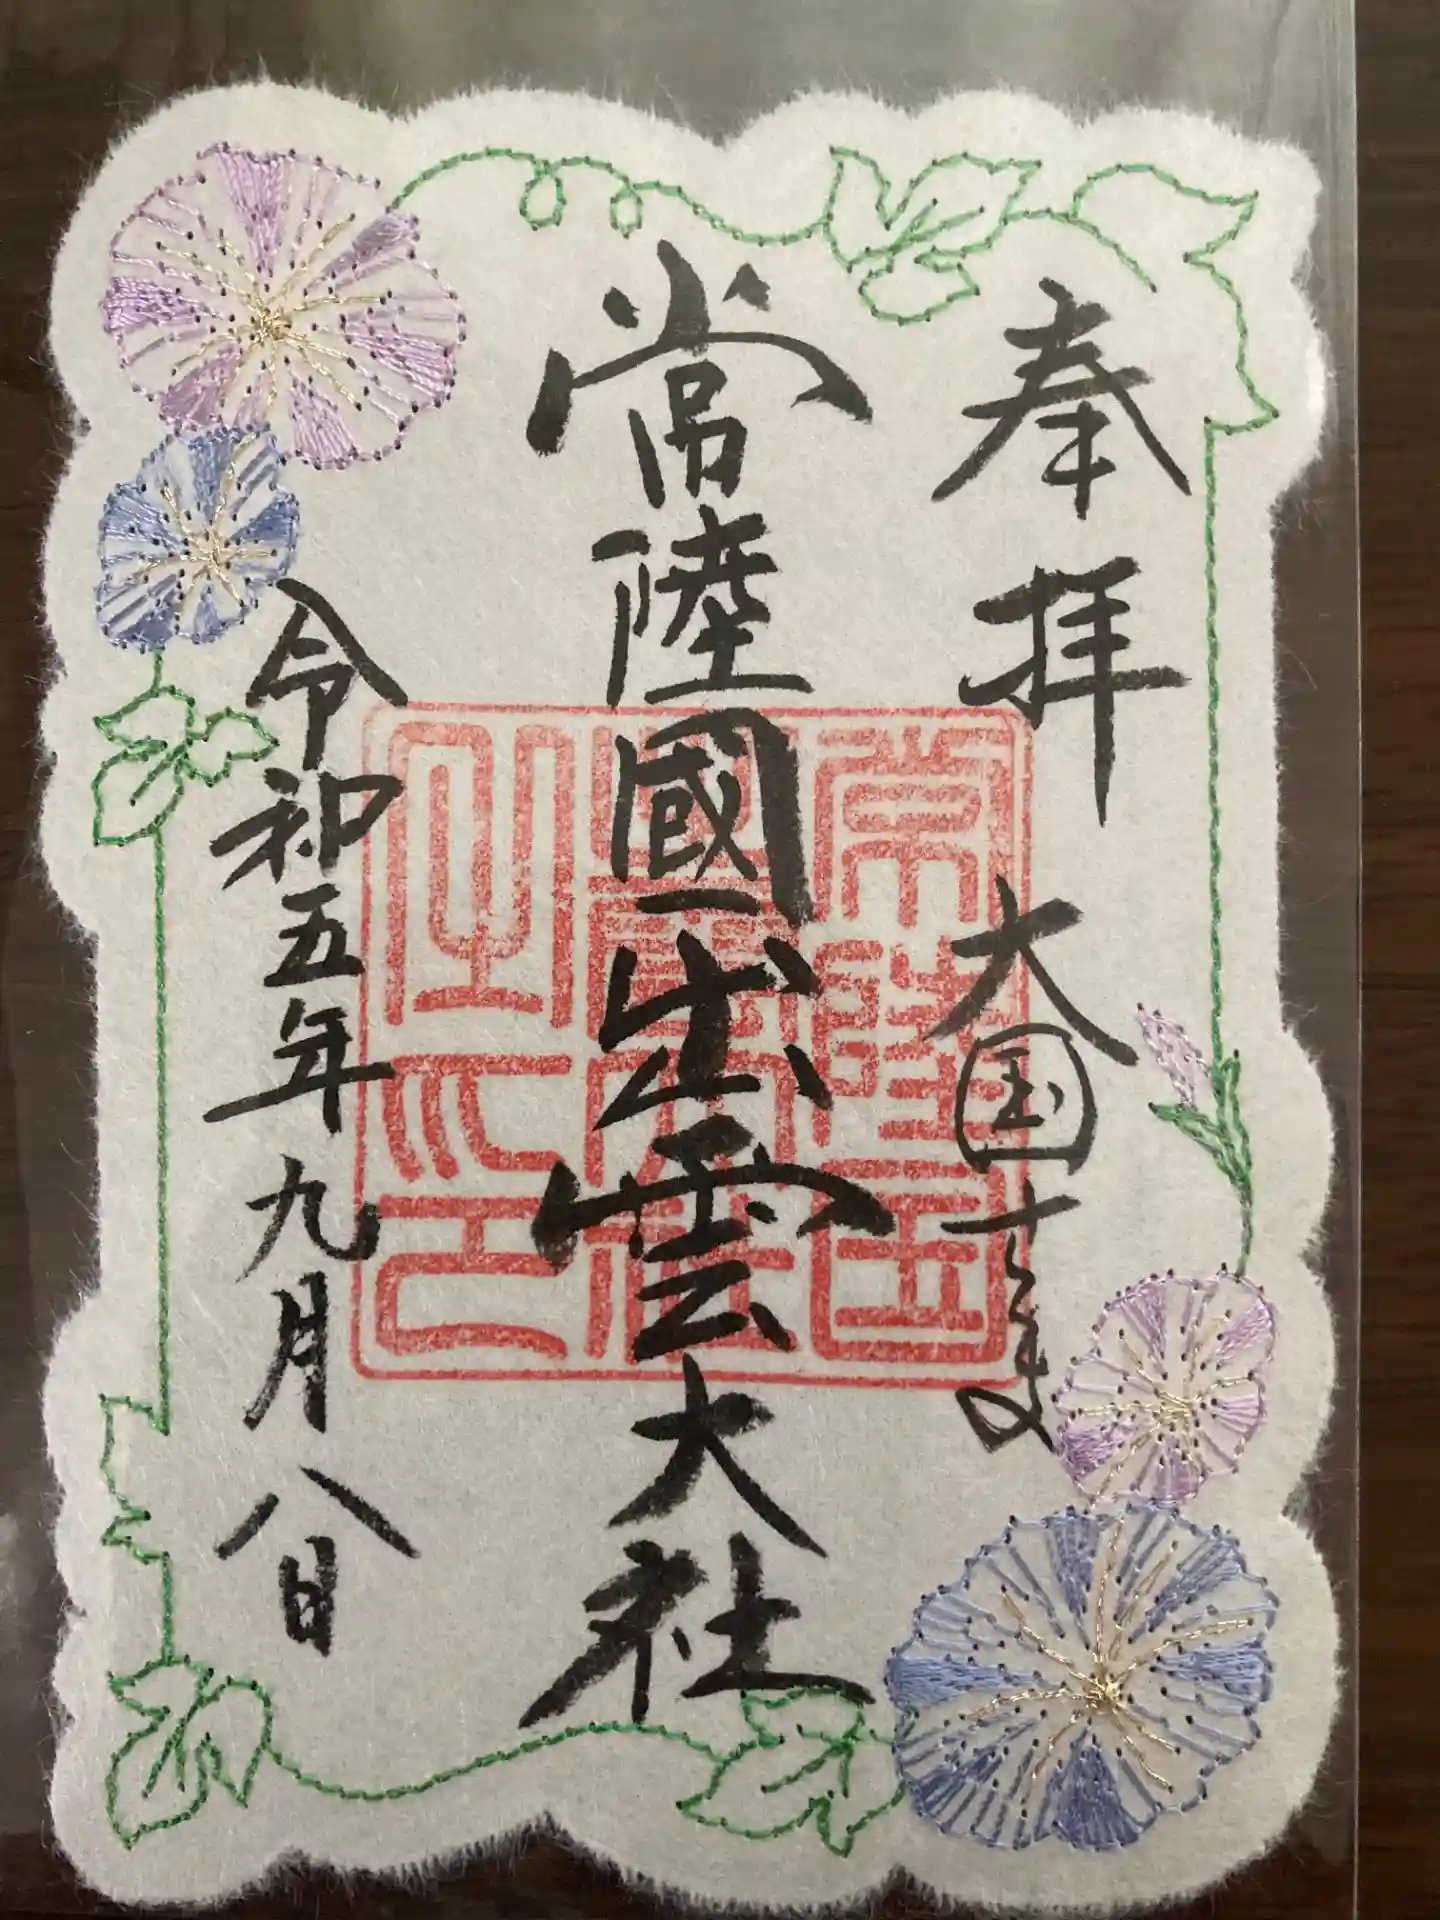 奉拝 大国さま
常陸國出雲大社
令和五年九月八日
常陸国
出雲大社
之印